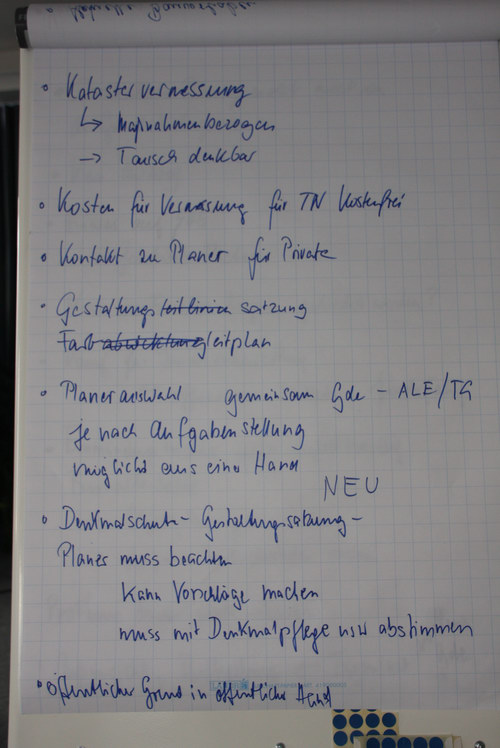 • Aktuelle Bauvorhaben
• Katastervermessung
↳ Maßnahmenbezogen
→ Tausch denkbar
• Kosten für Vermessung für TN kostenfrei
• Kontakt zu Planer für Private
• Gestaltungsleitlinien satzung
Farbabwicklungleitplan
• Planerauswahl gemeinsam Gde - ALE/TG
je nach Aufgabenstellung
möglichst aus einer Hand
NEU
• Denkmalschutz - Gestaltungssatzung -
Planer muss beachten
kann Vorschläge machen
muss mit Denkmalpflege usw abstimmen
• öffentlicher Grund in öffentliche Hand